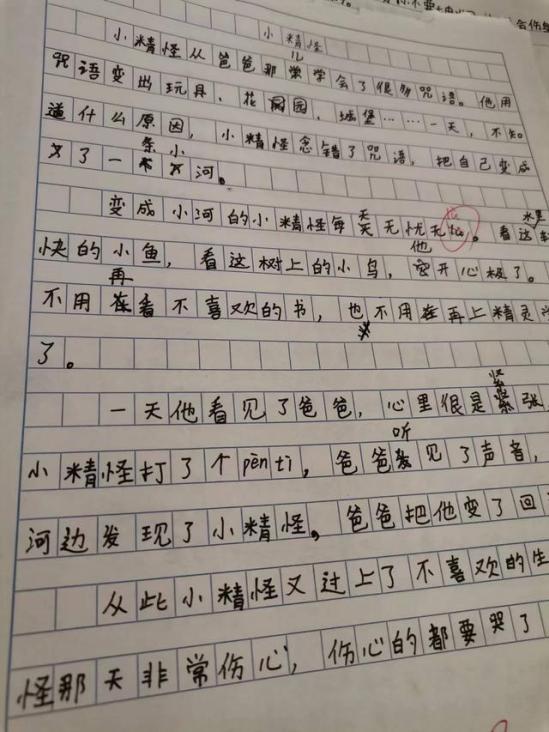 小精怪
小精怪从爸爸那儿学会了很多咒语。他用
咒语变出玩具、花园、城堡……一天，不知
道什么原因，小精怪念错了咒语，把自己变成
了一条小河。
变成小河的小精怪每天无忧无忧。看这水里
快的小鱼，看这树上的小鸟，他开心极了。
不用再看不喜欢的书，也不用在再上精灵
了。
一天他看见了爸爸，心里很是紧张
小精怪打了个pēn tì，爸爸听见了声音，
河边发现了小精怪。爸爸把他变了回
从此小精怪又过上了不喜欢的生
怪那天非常伤心，伤心的都要哭了